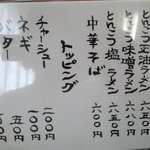 とんこつ正油ラーメン 六五〇
とんこつ味噌ラーメン 六八〇
とんこつ塩ラーメン 六五〇
中華そば 六〇〇
トッピング
チャーシュー 二〇〇
ネギ 一五〇
バター 一〇〇